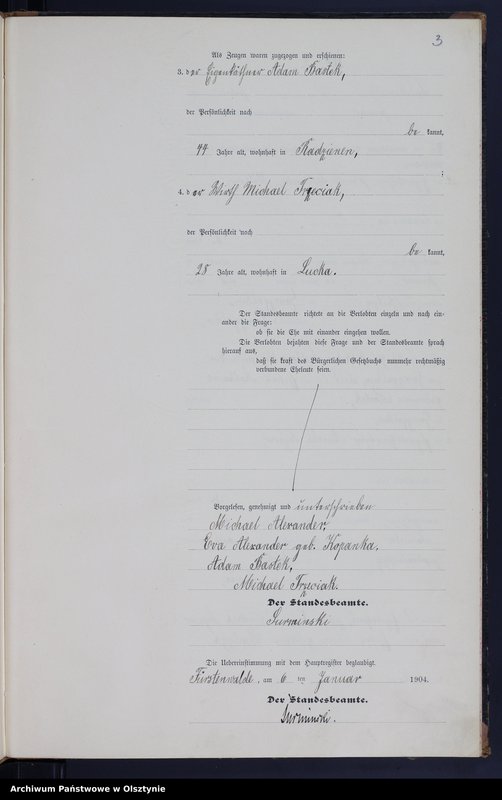 3
Als Zeugen waren zugezogen und erschienen:
3. der Eigenkäthner Adam Bastek,
der Persönlichkeit nach
be kannt,
44 Jahre alt, wohnhaft in Radzienen,
;
4. der Wirth Michael Trzeciak,
der Persönlichkeit noch
be kannt,
28 Jahre alt, wohnhaft in Lucka.
Der Standesbeamte richtete an die Verlobten einzeln und nach ein-
ander die Frage:
ob sie die Ehe mit einander eingehen wollen.
Die Verlobten bejahten diese Frage und der Standesbeamte sprach
hierauf aus,
daß sie kraft des Bürgerlichen Gesetzbuchs nunmehr rechtmäßig
verbundene Eheleute seien.
Vorgelesen, genehmigt und unterschrieben
Michael Alexander,
Eva Alexander geb. Kopanka.
Adam Bastek,
Michael Trzeciak.
Der Standesbeamte.
Surminski
Die Uebereinstimmung mit dem Hauptregister beglaubigt.
Fürstenwalde, am 6 ten Januar 1904.
Der Standesbeamte.
Surminski.
Archiwum Państwowe w Olsztynie